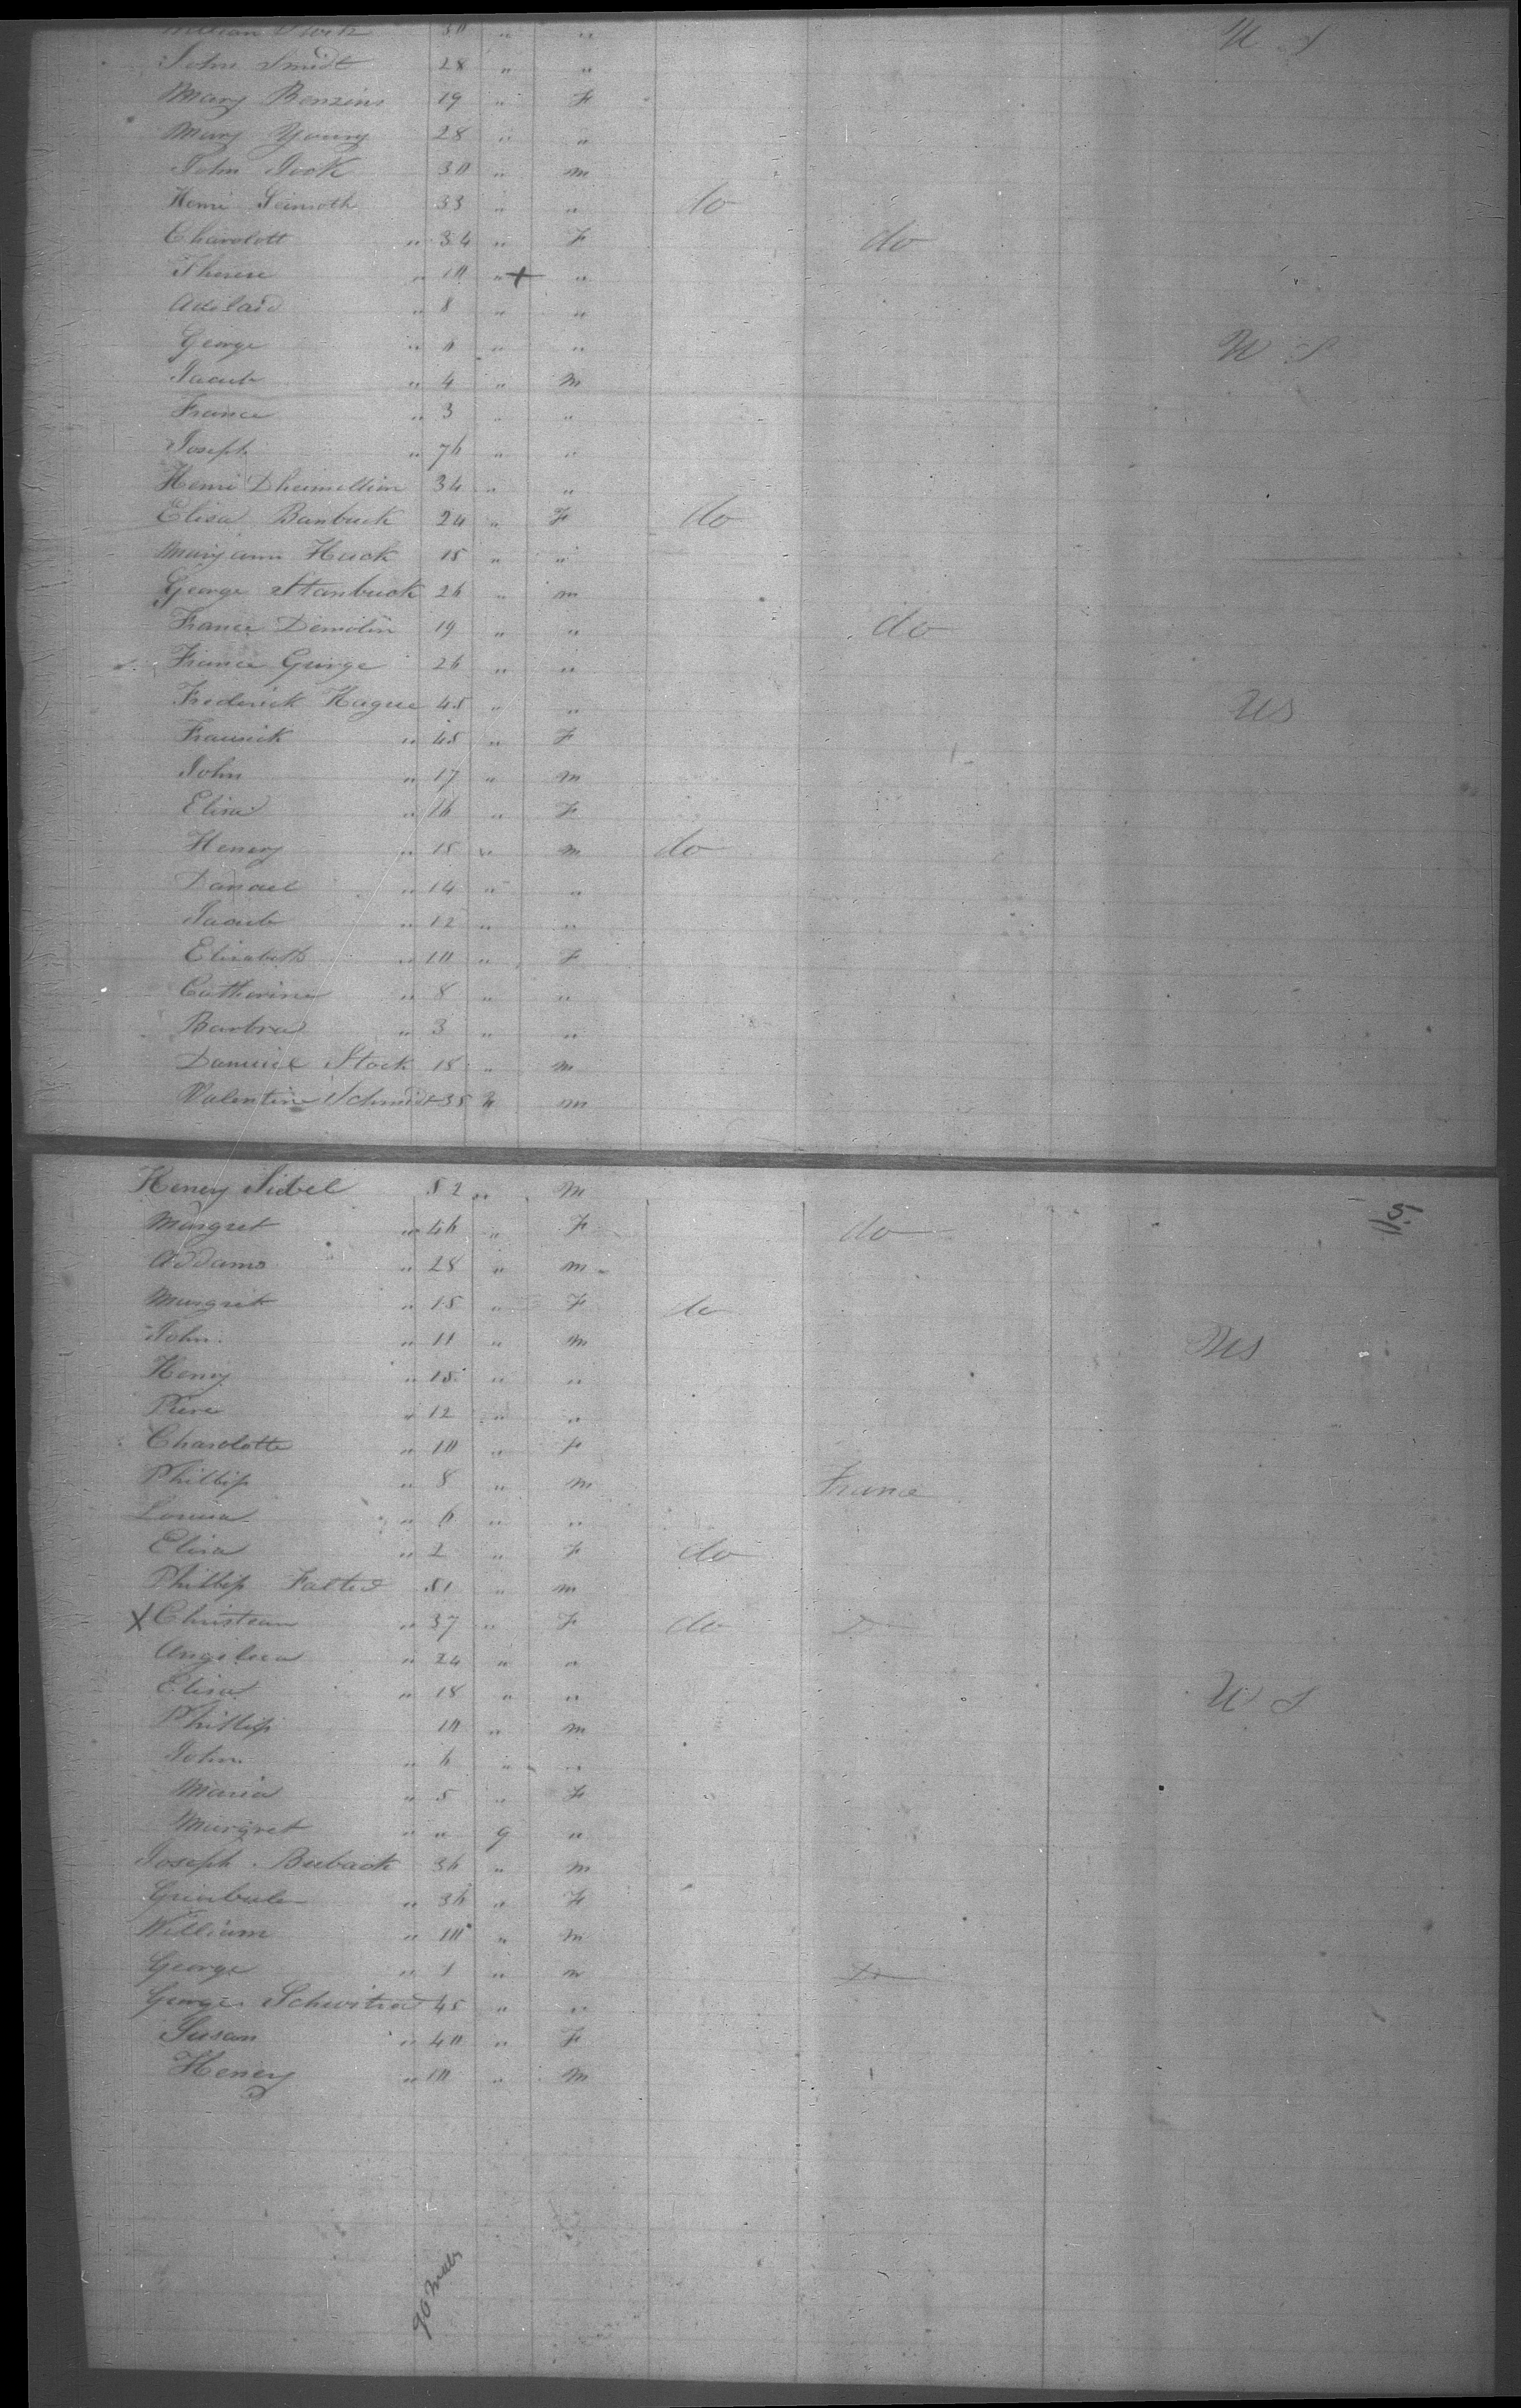 30 " " U S
John Smidt 28 " "
Mary Benzins 19 " F
Mary Young 28 " "
John Jook 30 " m
Henri Leinroth 33 " " do
Charolott " 34 " F do
Therese " 10 " + "
Adelaid " 8 " "
George " 6 " " U S
Jacub " 4 " m
France " 3 " "
Joseph " 76 " "
Henri 34 " "
Elisa Banbuck 24 " F do
Maryann Hack 15 " "
George Stanbuck 26 " m
France Demolin 19 " " do
France George 26 " "
Frederick Hague 45 " " US
" 45 " F
John " 17 " m
Elisa " 16 " F
Henery " 15 " m do
Danael " 14 " "
Jacub " 12 " "
Elisabeth " 10 " F
Catherine " 8 " "
Barbra " 3 " "
Stock 18 " m
Valentine Schmidt 35 " m
Henery Siebel 52 " m
5.
Margret " 46 " F do
Addams " 28 " m
Margret " 18 " F do
John " 11 " m US
Henry " 15 " "
Piere " 12 " "
Charolotte " 10 " F
Phillip " 8 " m France
Louisa " 6 " "
Elisa " 2 " F do
Phillip 51 " m
X Christean " 37 " F do
" 24 " "
Elisa " 18 " " U S
Phillip 10 " m
John " 6 " "
Maria " 5 " F
Margret " " 9 "
Joseph Beeback 36 " m
" 36 " F
William " 10 " m
George " 1 " m
George 45 " "
Susan " 40 " F
Henery " 10 " m
90 males